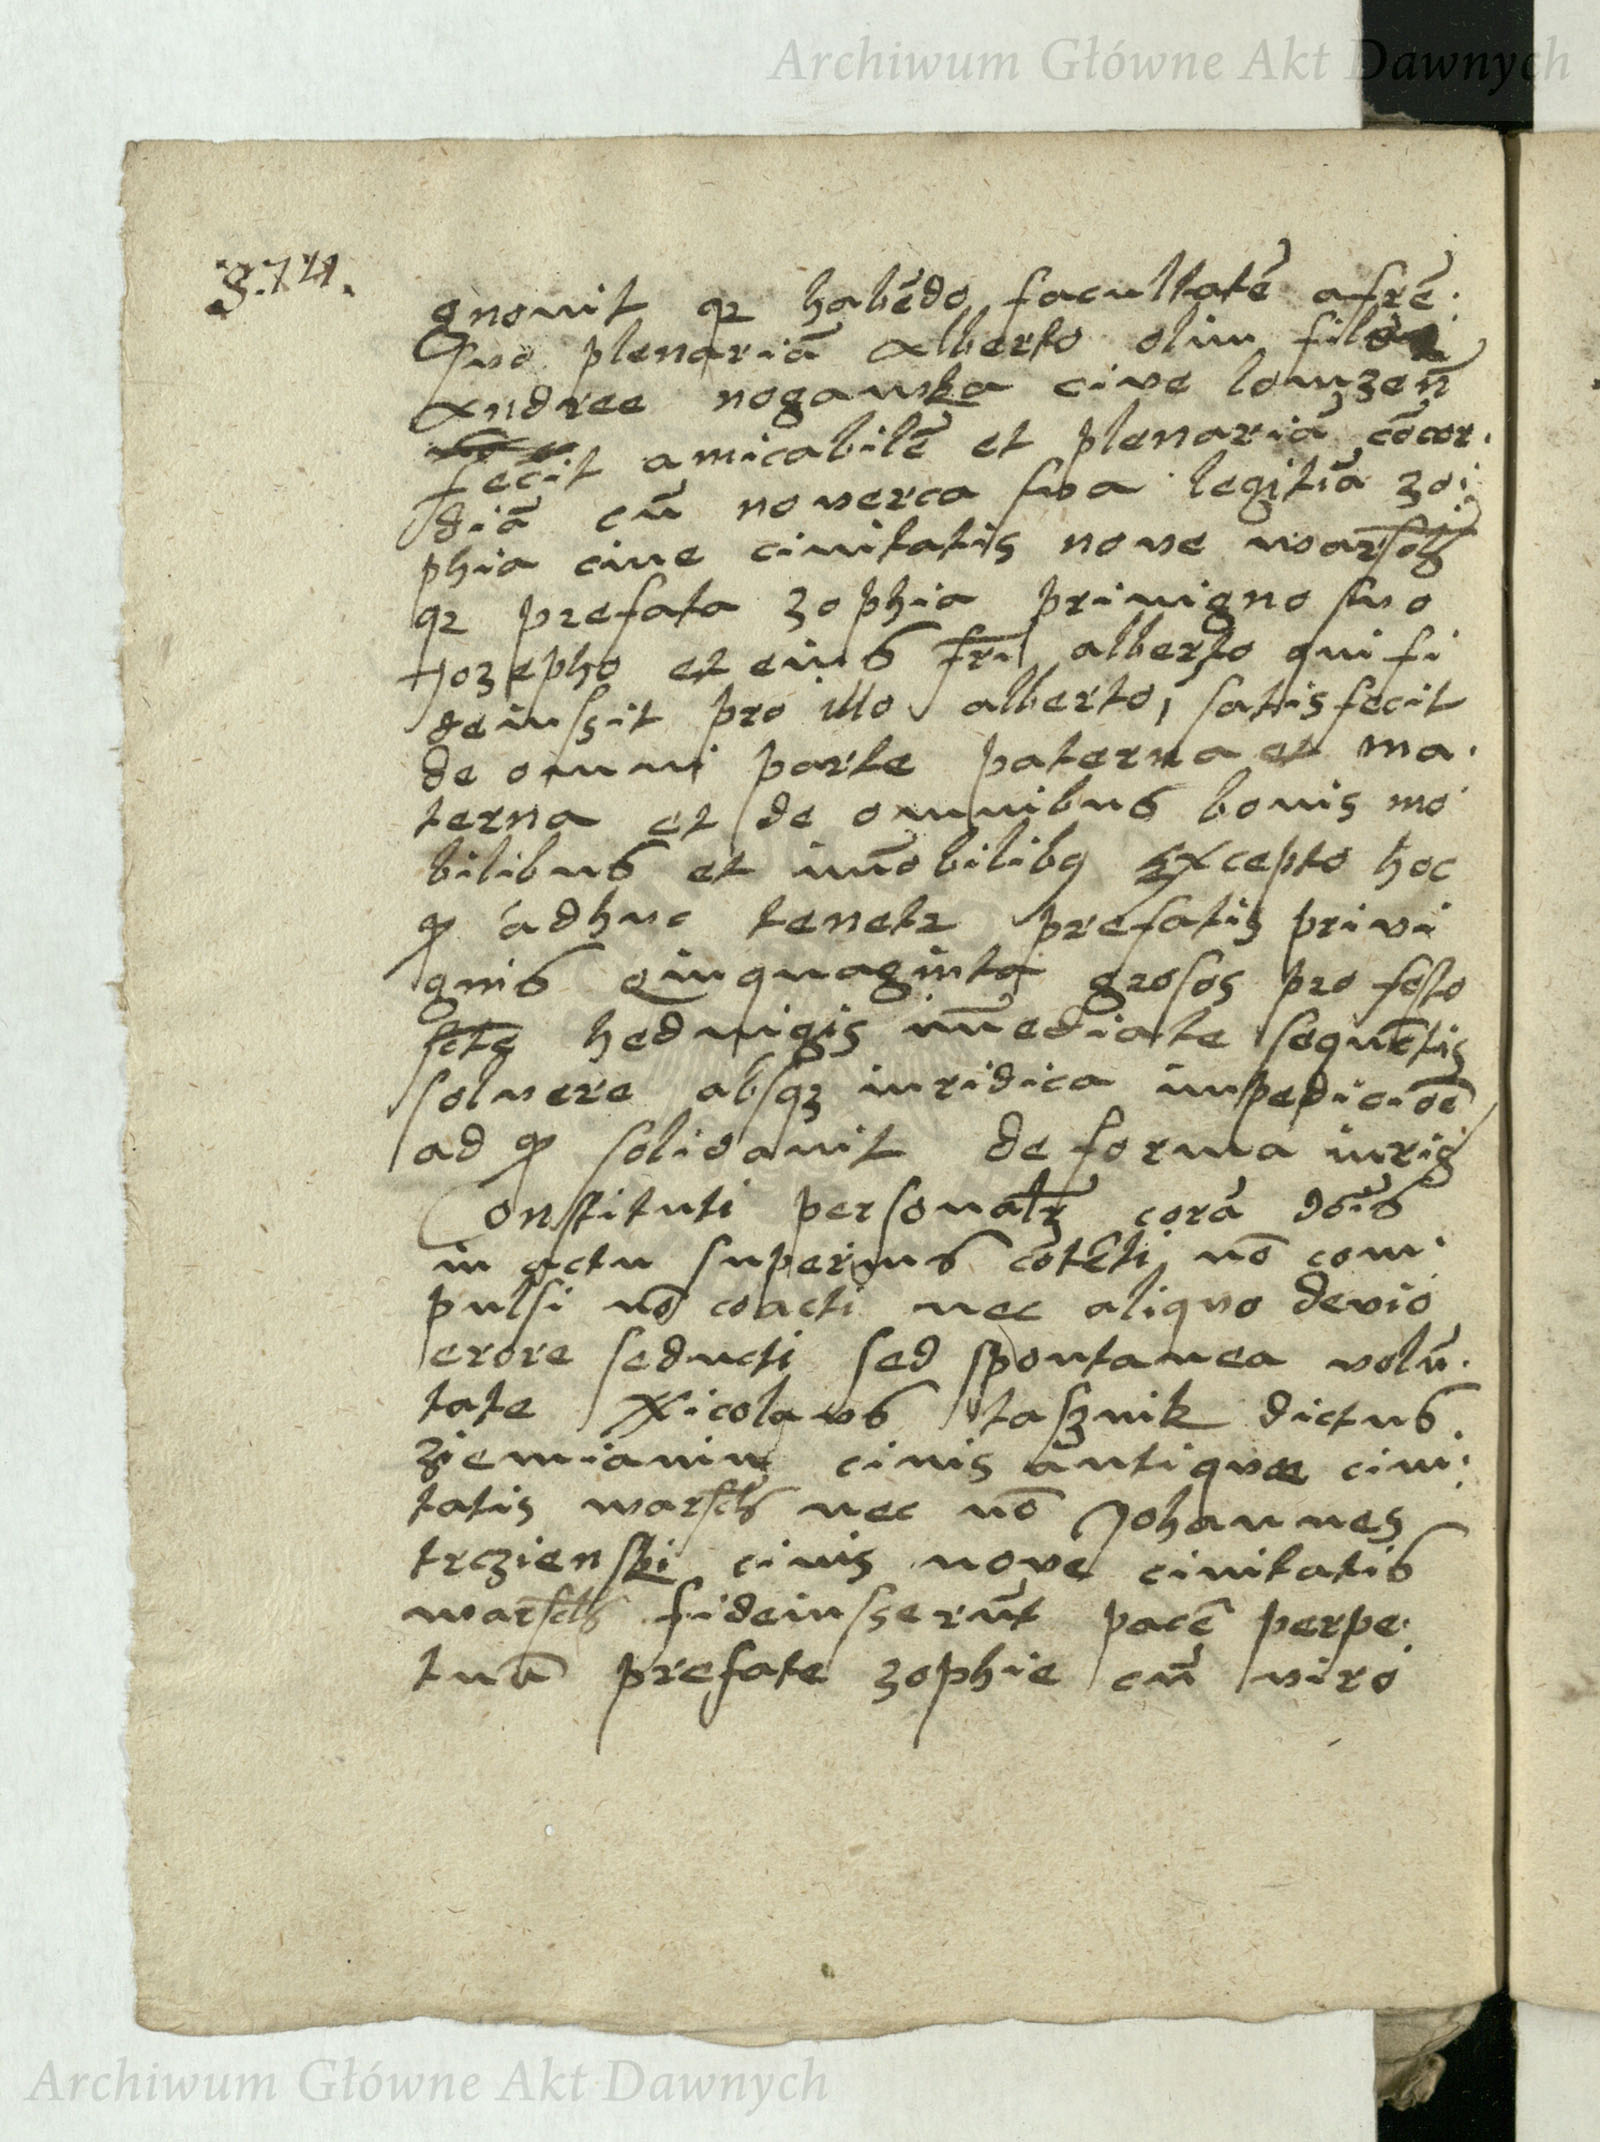 Archiwum Główne Akt Dawnych
gnouit qz habēdo facultatē a frē
suo plenariā Alberto olim
Andree nogawka cive lomzeñ
fecit amicabilē et plenariā cōcor.
diā cū noverca sua legitīa zo:
phia ciue ciuitatis nove
qz prefata zophia priuigno suo
Jozepho et eius fri alberto qui fi
deiussit pro illo alberto, satisfecit
de omni parte paterna et ma.
terna et de omnibus bonis mo
bilibus et im̄obilibq excepto hoc
ꝙ adhuc tenetz prefatis privi
gnis quinquaginta grosos pro festo
hedvigis im̄ediate sequētis
soluere absqz iuridica impediciōe
ad ꝙ solidauit de forma iuris
Constituti personalr corā dōis
in actu superius cōtēti nō com.
pulsi nō coacti nec aliquo devio
erore seducti sed spontanea volū.
tate Nicolaus tasznik dictus
ziemianin ciuis antique ciui:
tatis warsch nec nō Johannes
trczienski ciuis nove ciuitatis
warsch fideiusserūt pacē perpe.
tuā prefate zophie cū viro
Archiwum Główne Akt Dawnych